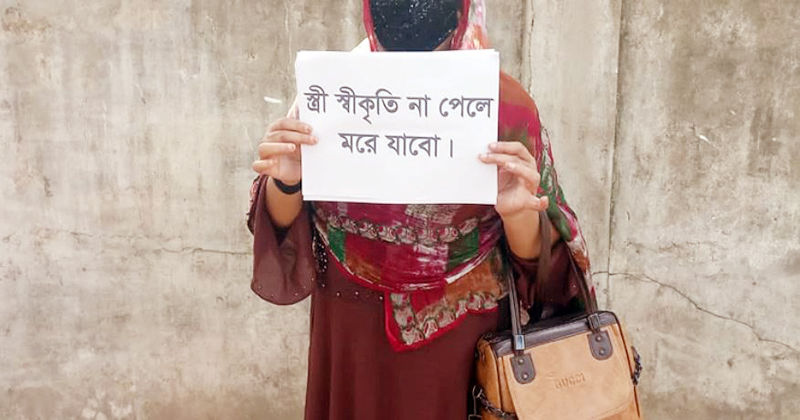 স্ত্রী স্বীকৃতি না পেলে
মরে যাবো।
GUCCI